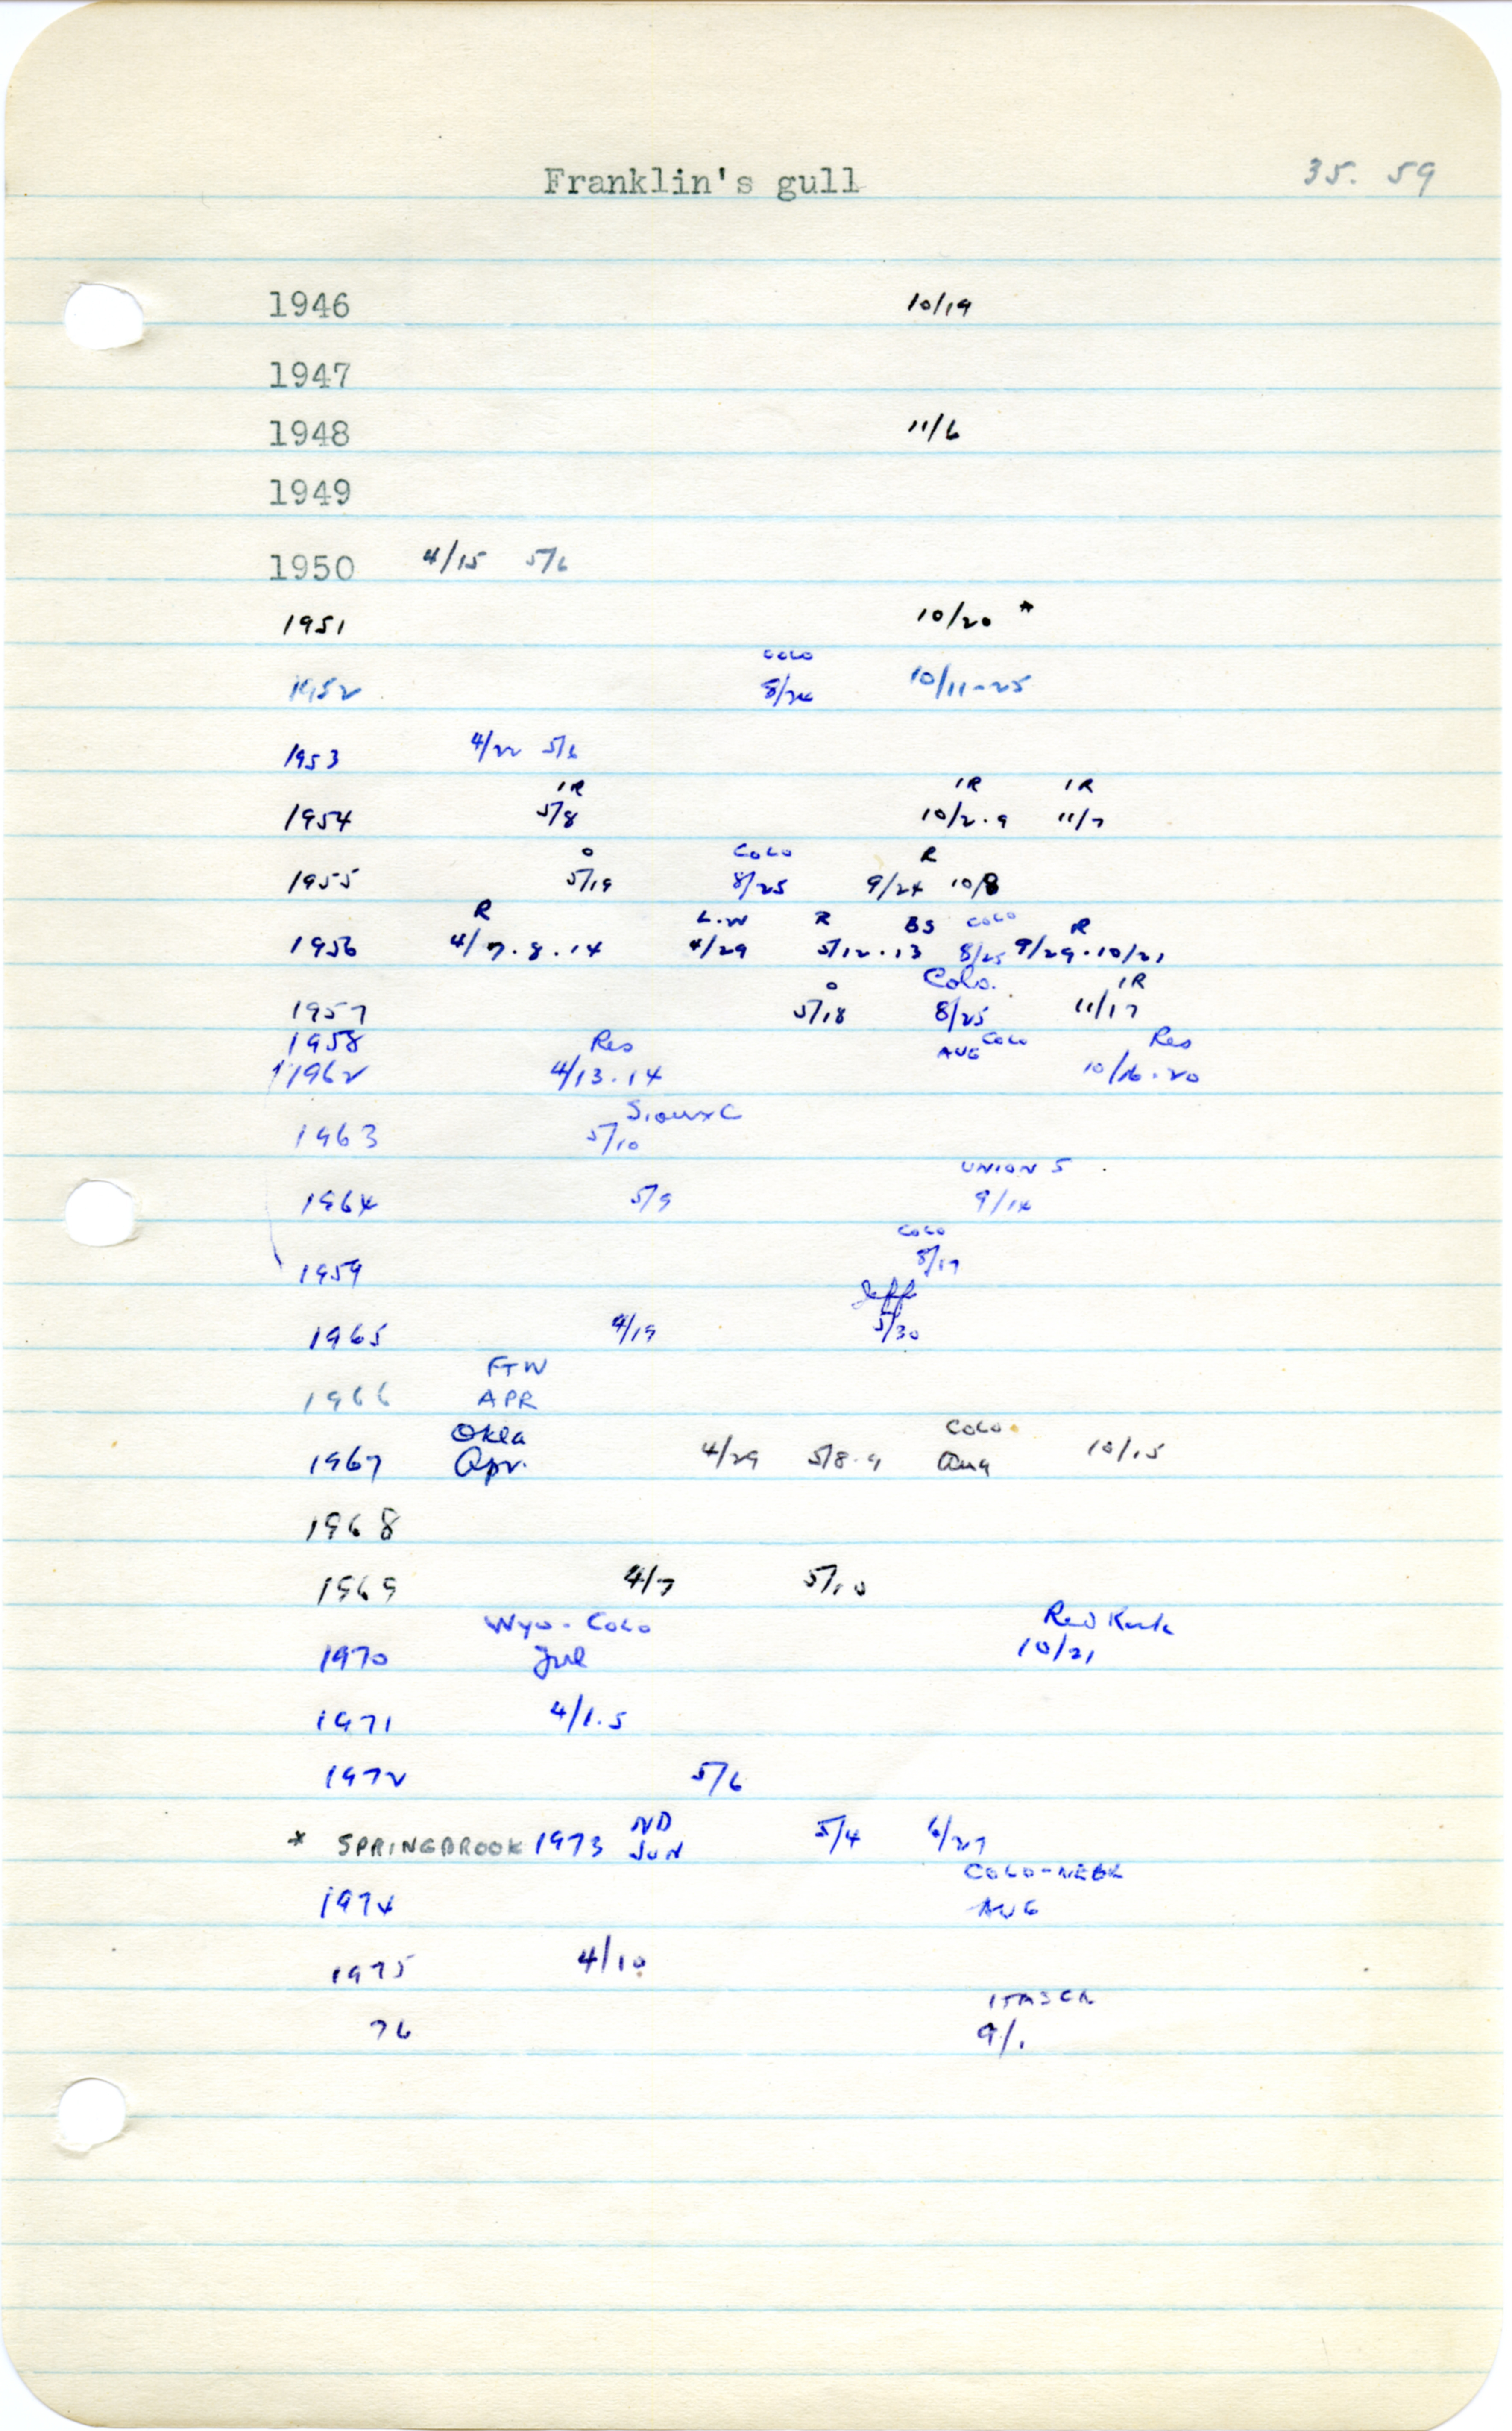 Franklin's gull 35. 59
1946 10/19
1947
1948 11/6
1949
1950 4/15 5/6
1951 10/20 *
COLO
1952 8/24 10/11-25
1953 4/22 5/6
1R 1R 1R
1954 5/8 10/2.9 11/7
O COLO R
1955 5/19 8/25 9/24 10/8
R L.W R BS COLO R
1956 4/7.8.14 4/29 5/12.13 8/25 9/29.10/21
O Colo. 1R
1957 5/18 8/25 11/17
1958 Res AUG COLO Res
1962 4/13.14 10/16.20
Sioux C
1963 5/10
UNION S
1964 5/9 9/14
COLO
1959 8/17
Jeff
1965 4/19 5/30
FTW
1966 APR
Okla COLO
1967 Apr. 4/29 5/8.9 Aug 10/15
1968
1969 4/7 5/10
Wyo-Colo Red Rock
1970 Jul 10/21
1971 4/1.5
1972 5/6
ND
* SPRINGBROOK 1973 JUN 5/4 6/27
COLO-NEBR
1974 AUG
1975 4/10
ITASCA
76 9/1